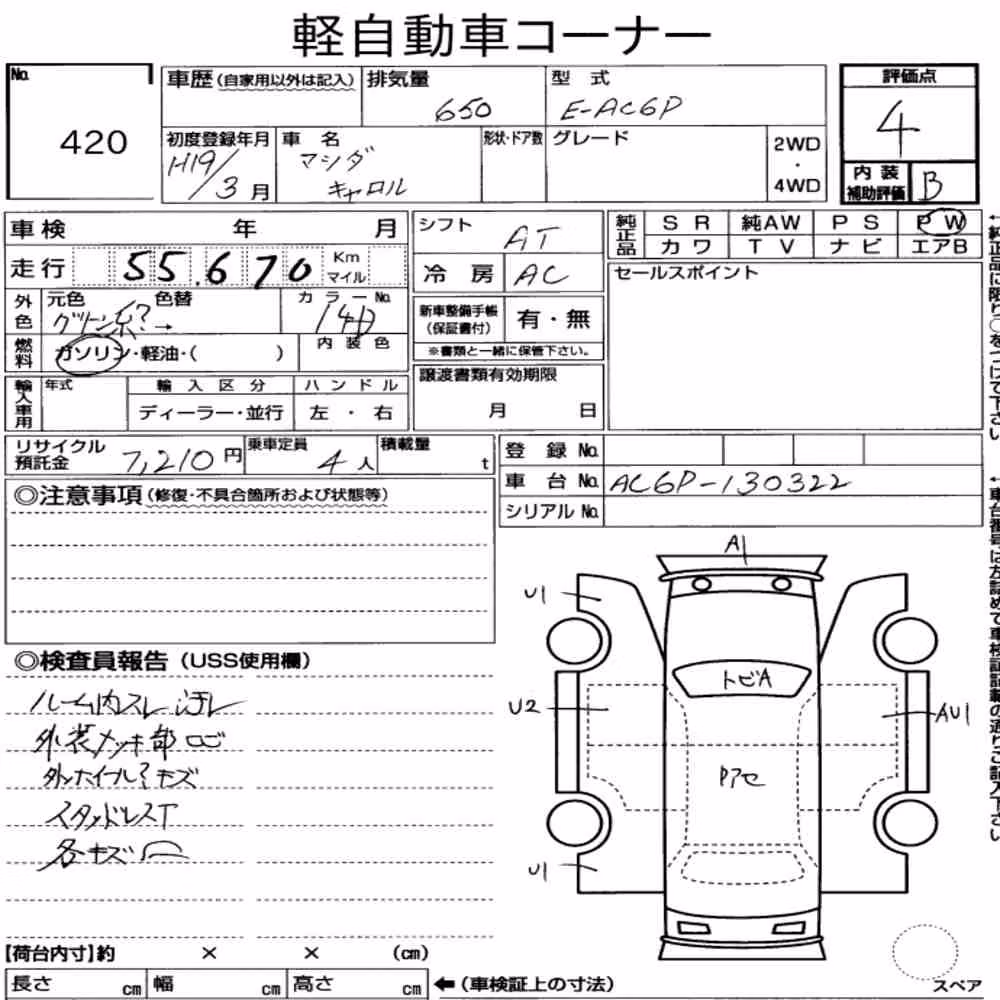 軽自動車コーナー
No. 420
車歴(自家用以外は記入) 排気量 650 型式 E-AC6P
評価点 4
初度登録年月 H19/3月 車名 マツダ キャロル 形状・ドア数 グレード 2WD・4WD
内装補助評価 B
車検 年 月
シフト AT
純正品 SR 純AW PS PW
カワ TV ナビ エアB
走行 55,670 Km マイル
冷房 AC
セールスポイント
外色 元色 グリーン系 → 色替 カラーNo. 14D
新車整備手帳(保証書付) 有・無
※書類と一緒に保管下さい。
燃料 ガソリン・軽油・( ) 内装色
輸入車用 年式 輸入区分 ハンドル
ディーラー・並行 左・右
譲渡書類有効期限
月 日
リサイクル預託金 7,210円 乗車定員 4人 積載量 t
登録No.
車台No. AC6P-130322
シリアルNo.
◎注意事項(修復・不具合箇所および状態等)
◎検査員報告(USS使用欄)
ルーム内スレ汚レ
外装メッキ部サビ
キズ
スタッドレスT
各キズ凹
A1
U1
トビA
U2
AU1
Pアセ
U1
【荷台内寸】約 × × (cm)
長さ cm 幅 cm 高さ cm ←(車検証上の寸法)
スペア
←純正品に限り○をつけて下さい
←車台番号は左詰めで車検証記載の通りご記入下さい